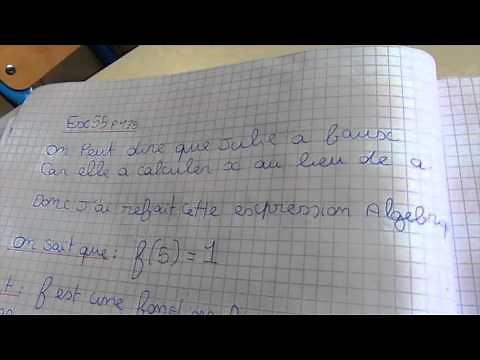 Exo 55 p 128
On Peut dire que Julie a faux
Car elle a calculer x au lieu de a.
Donc J'ai refait cette expression Algebriq
On Sait que : f(5) = 1
t : f est une fonct